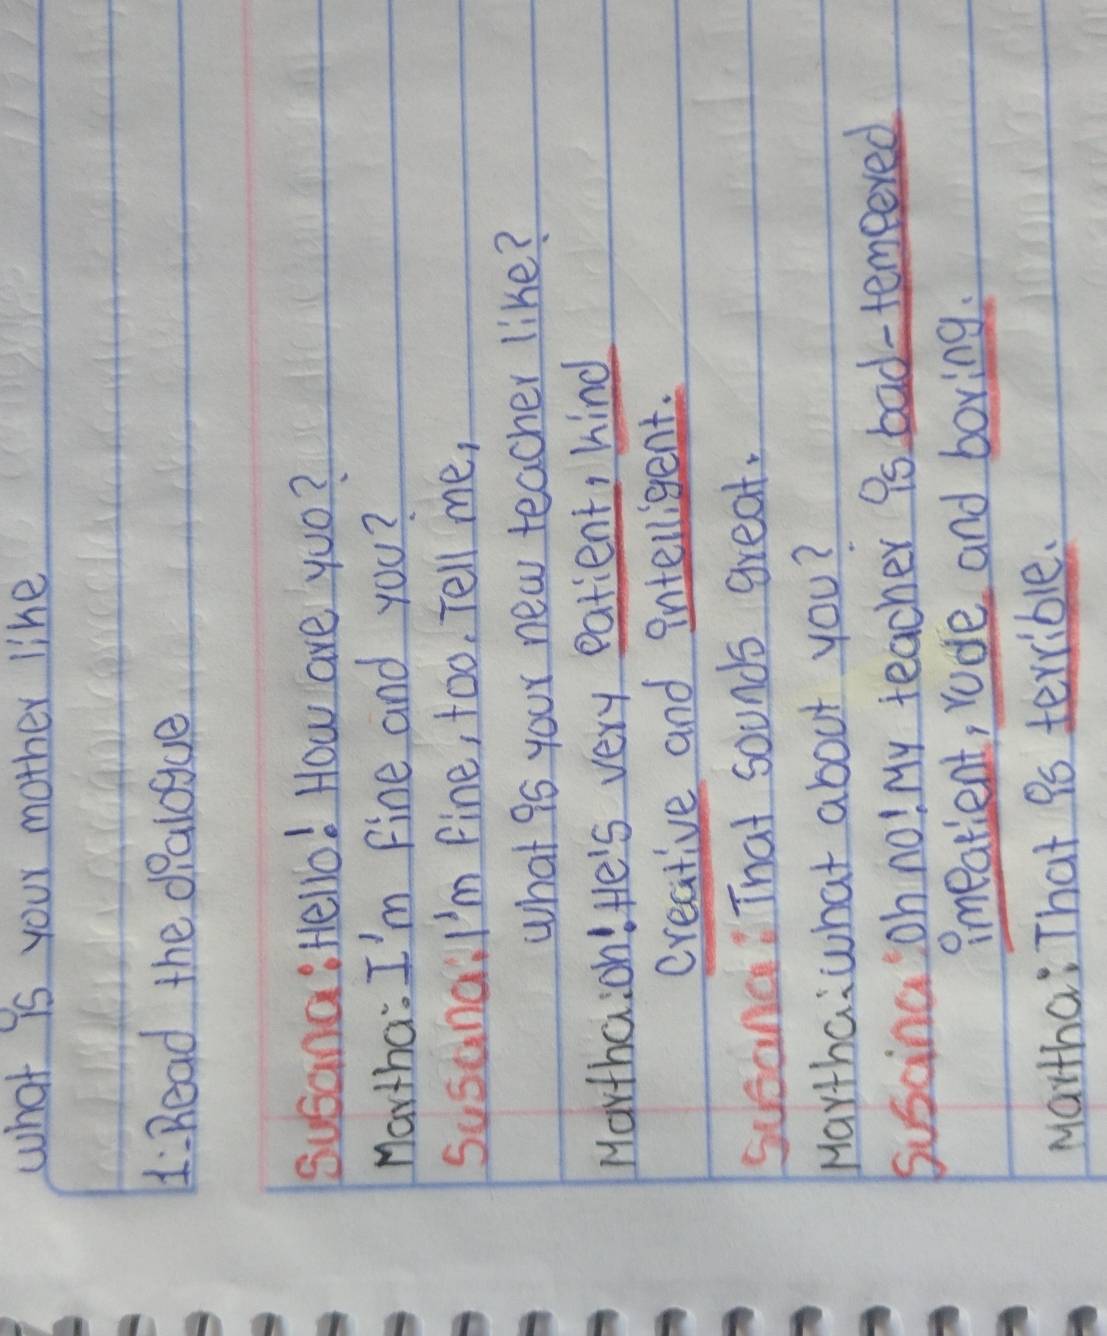 what is your mother like
1:-Read the dialogue
Susana: Hello! How are yuo?
Martha: I'm fine and you?
Susana: I'm fine, too. Tell me,
what is your new teacher like?
Martha: oh! He's very patient, kind
creative and intelligent.
Susana: That sounds great.
Martha: what about you?
Susaina: oh no! My teacher is bad-tempered
impatient, rude and boring.
Martha: That is terrible.